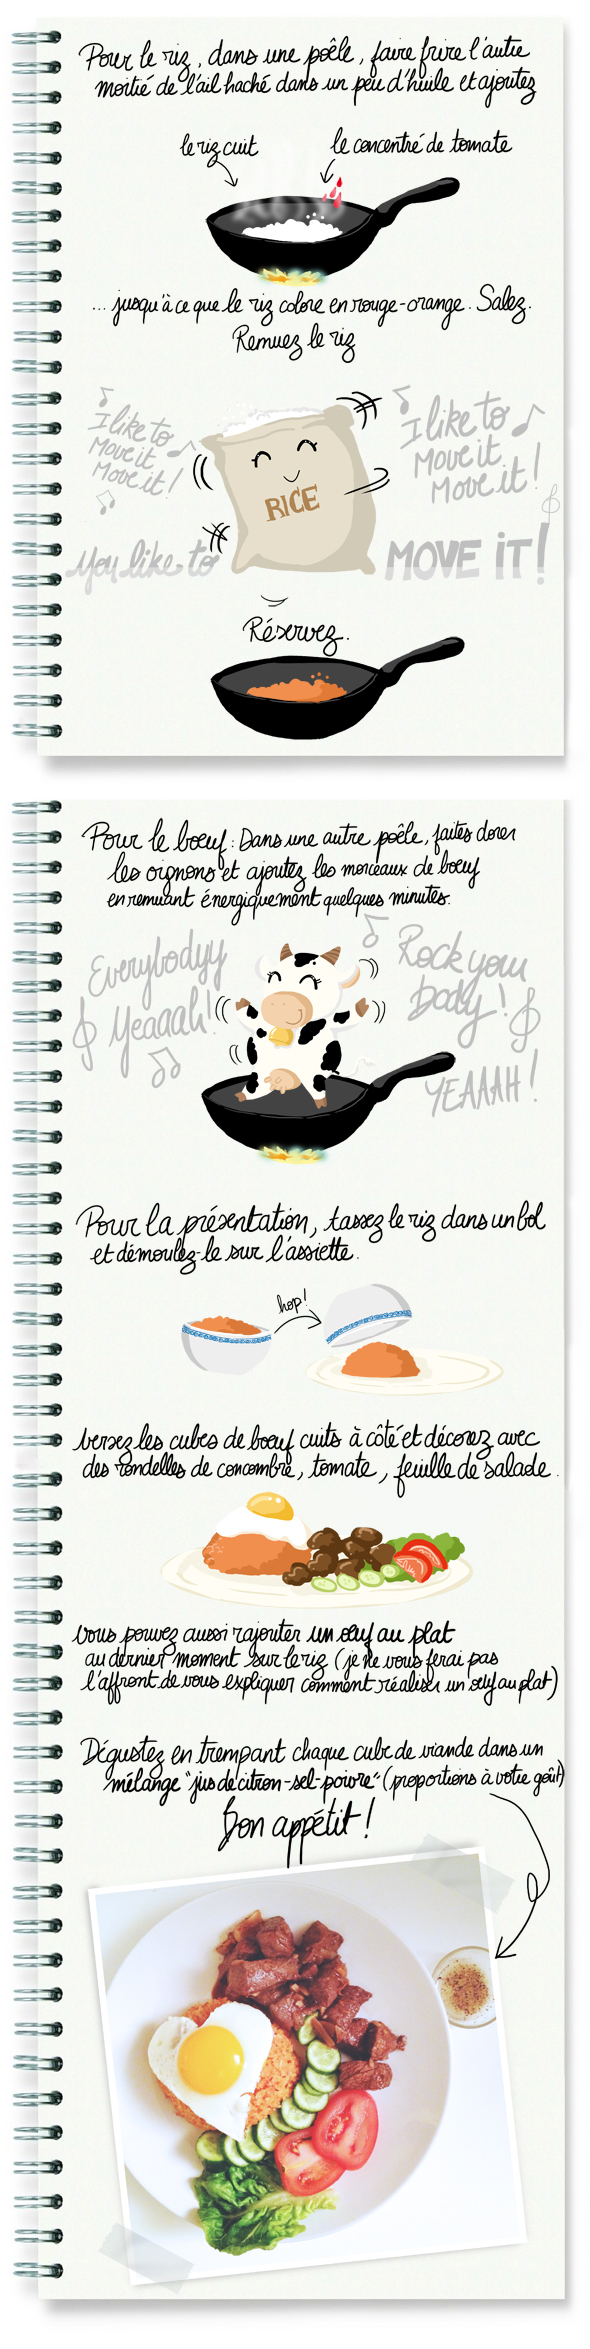 Pour le riz, dans une poêle, faire frire l'autre
moitié de l'ail haché dans un peu d'huile et ajoutez
le riz cuit
le concentré de tomate
... jusqu'à ce que le riz colore en rouge-orange. Salez.
Remuez le riz
I like to
Move it
Move it!
I like to
Move it
Move it!
RICE
You like to
MOVE iT!
Réservez.
Pour le bœuf: Dans une autre poêle, faites dorer
les oignons et ajoutez les morceaux de bœuf
en remuant énergiquement quelques minutes.
Everybodyy
Yeaaah!
Rock your
Body!
YEAAAH!
Pour la présentation, tassez le riz dans un bol
et démoulez-le sur l'assiette.
hop!
Versez les cubes de bœuf cuits à côté et décorez avec
des rondelles de concombre, tomate, feuille de salade.
Vous pouvez aussi rajouter un œuf au plat
au dernier moment sur le riz (je ne vous ferai pas
l'affront de vous expliquer comment réaliser un œuf au plat)
Dégustez en trempant chaque cube de viande dans un
mélange "jus de citron-sel-poivre" (proportions à votre goût)
Bon appétit!